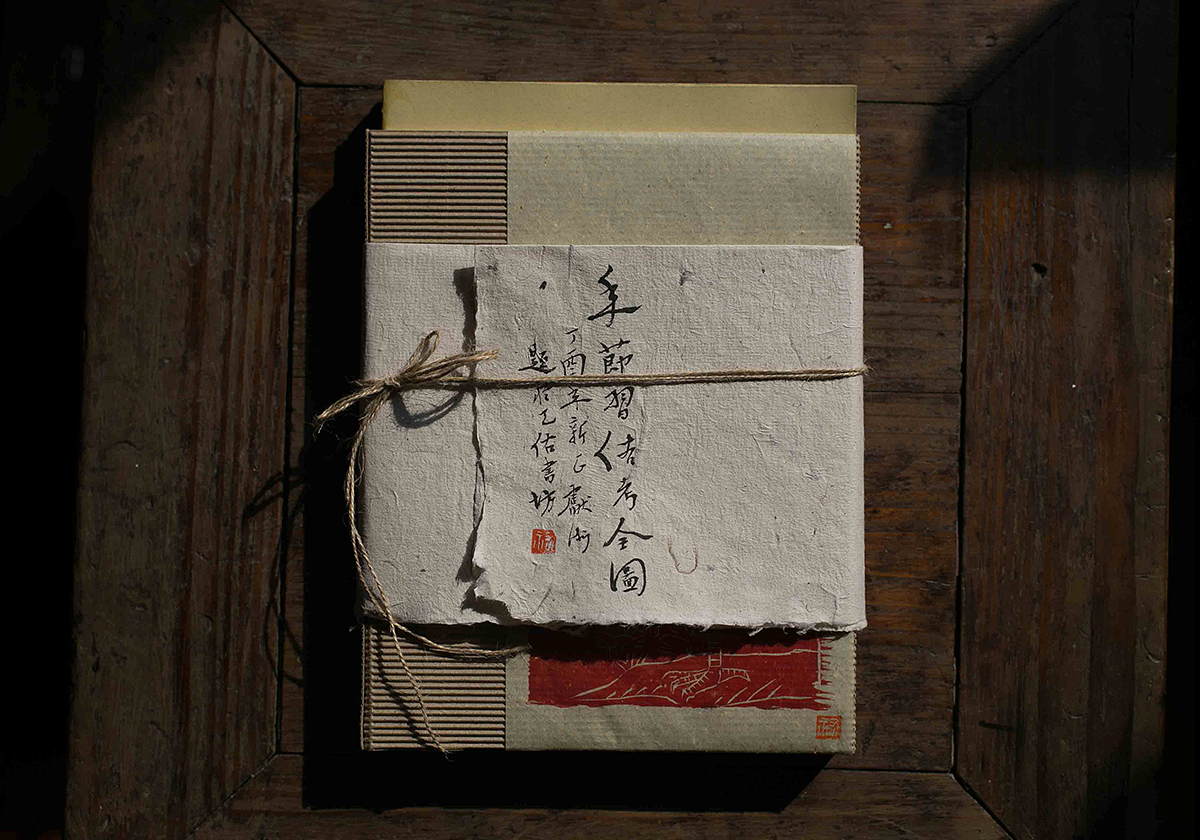 年節習俗考全圖
丁酉年新正獻
題於書坊